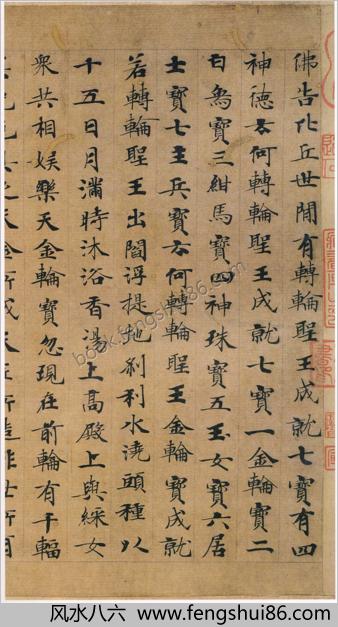 佛告比丘世間有轉輪聖王成就七寶有四
神德云何轉輪聖王成就七寶一金輪寶二
白象寶三紺馬寶四神珠寶五玉女寶六居
士寶七主兵寶云何轉輪聖王金輪寶成就
若轉輪聖王出閻浮提地刹利水澆頭種以
十五日月滿時沐浴香湯上高殿上與綵女
衆共相娛樂天金輪寶忽現在前輪有千輻
天金所成天匠所造非世所有
book.fengshui86.com
风水八六 www.fengshui86.com